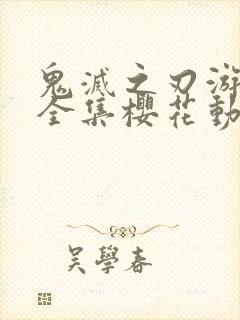 鬼滅之刃游
全集櫻花動
吳學春